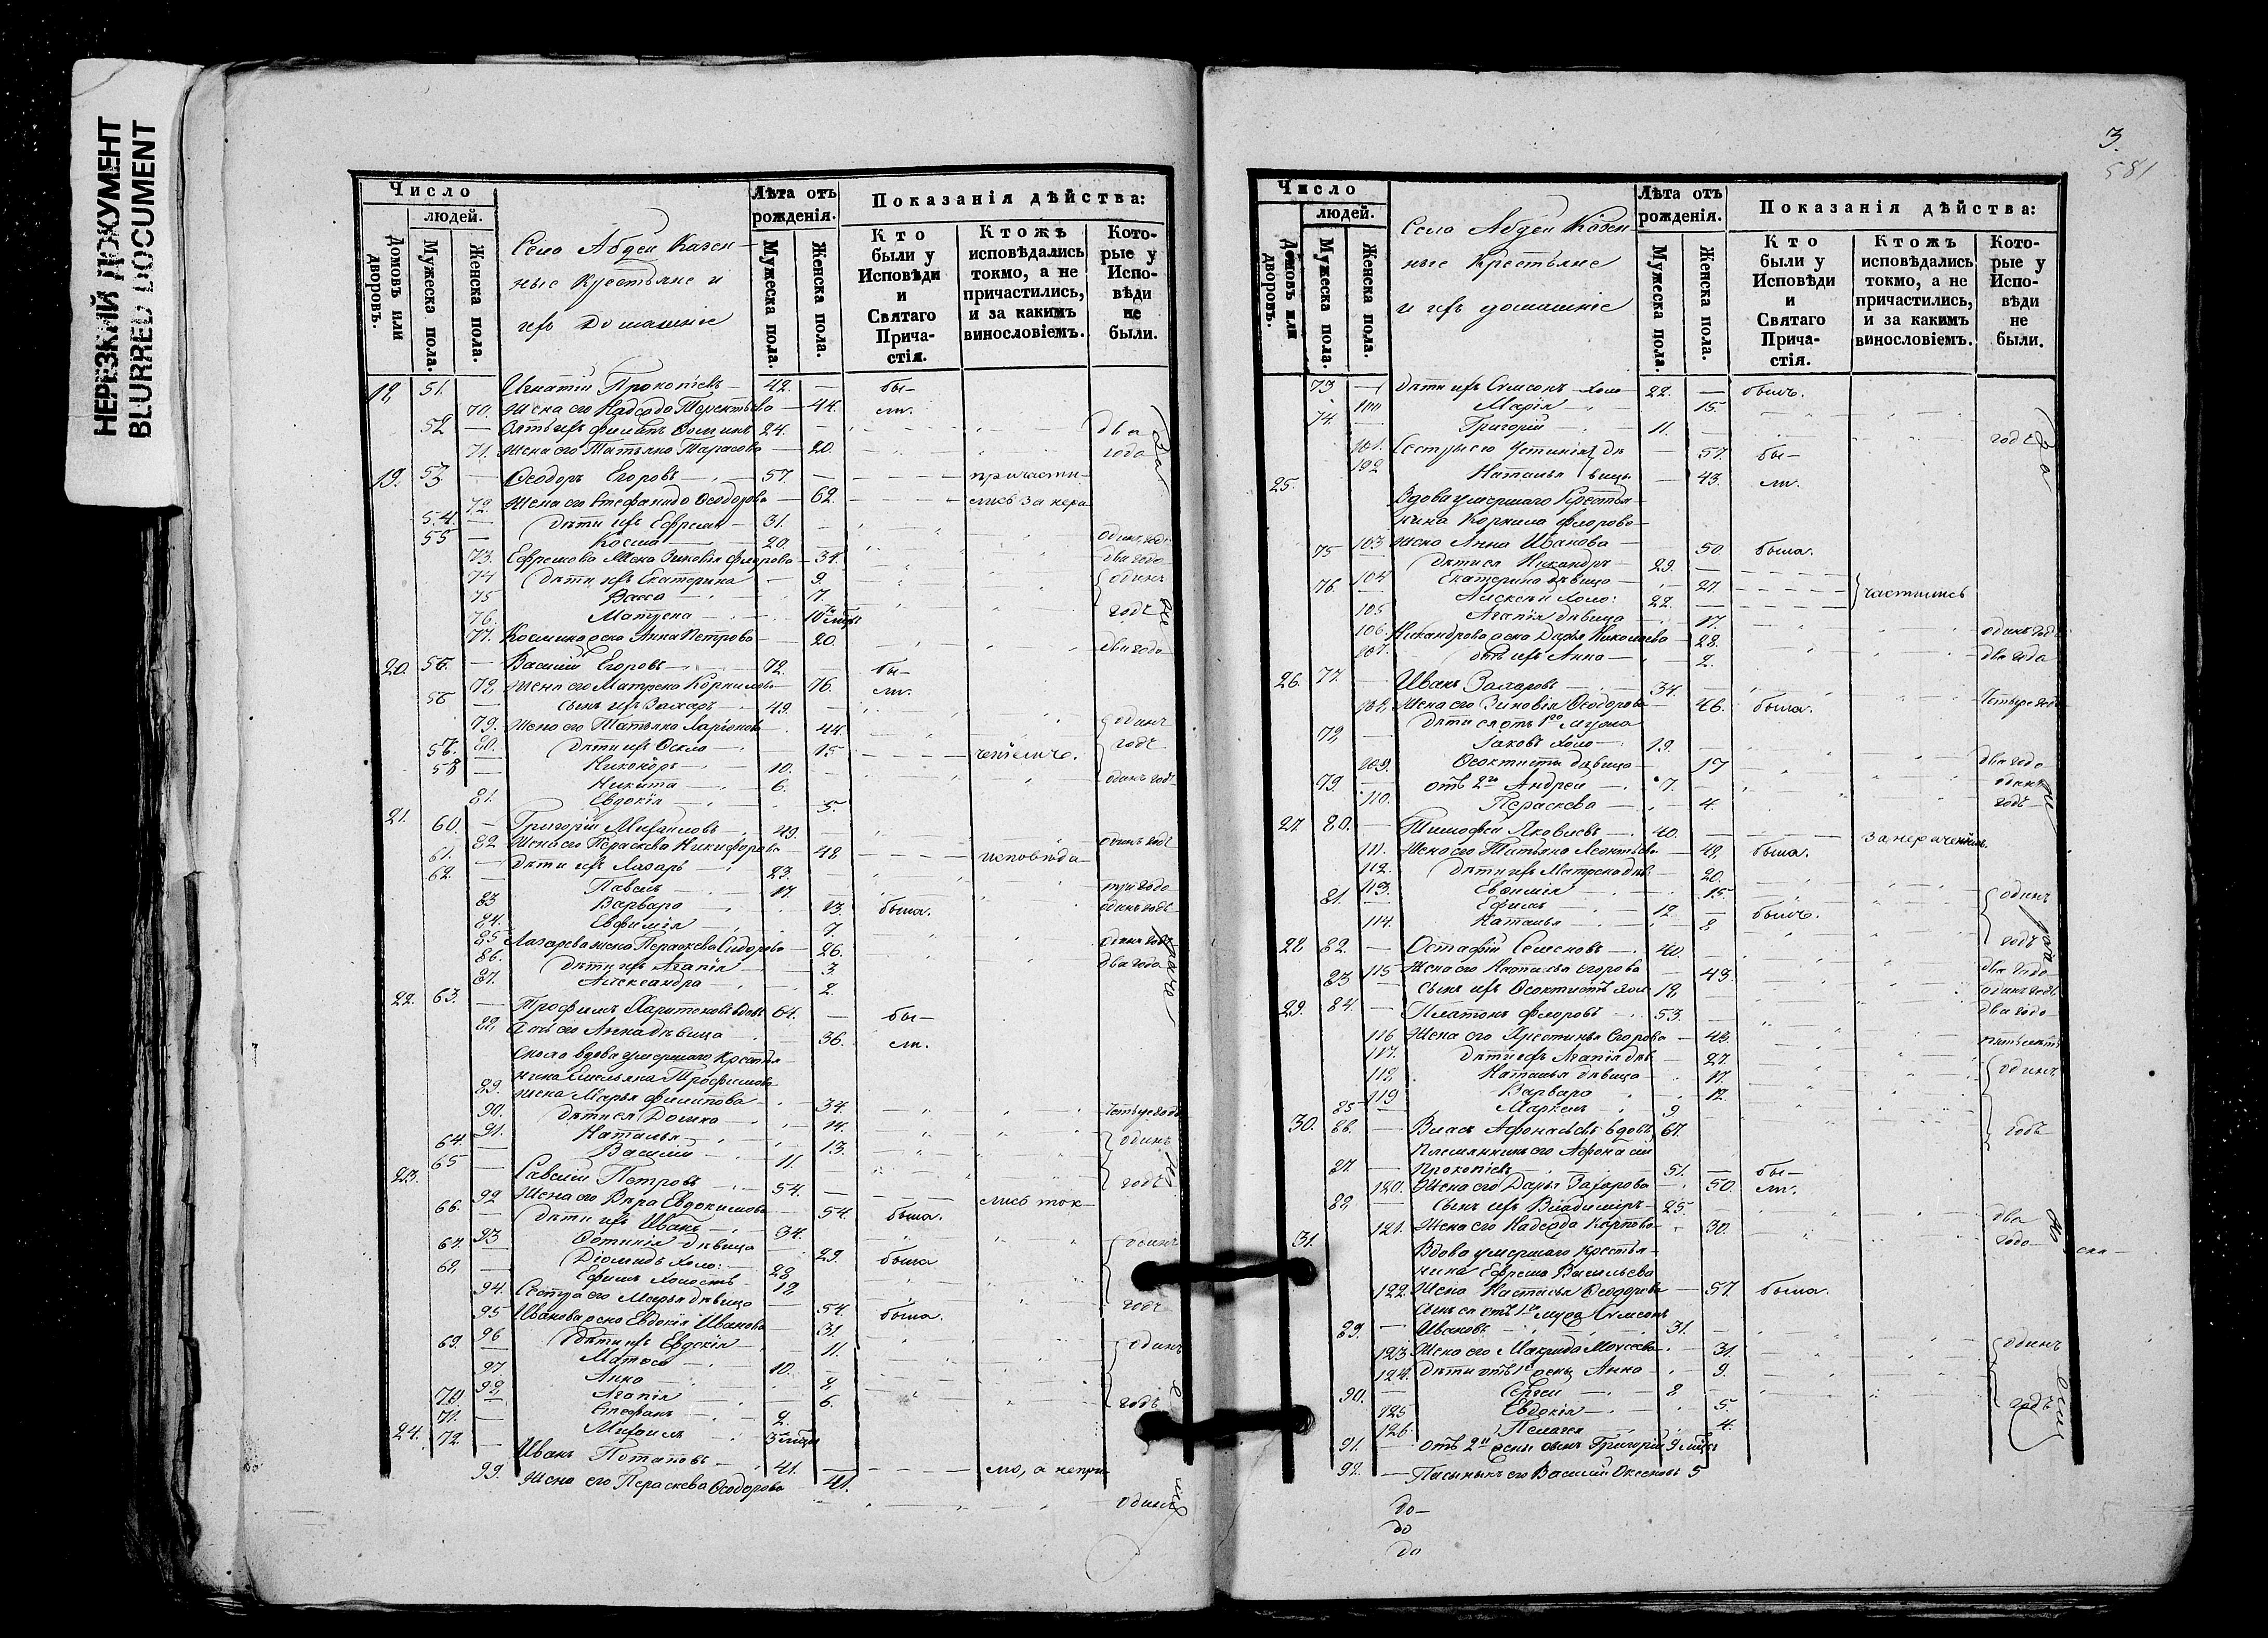 НЕРЕЗКИЙ ДОКУМЕНТ
BLURRED DOCUMENT
Число
людей.
Домовъ или дворовъ.
Мужеска пола.
Женска пола.
Село Абди Казен-
ные крестьяне и
ихъ домашніе
Лѣта отъ рожденія.
Мужеска пола.
Женска пола.
Показанія дѣйства:
Кто были у Исповѣди и Святаго Прича-стія.
Ктожъ исповѣдались токмо, а не причастились, и за какимъ винословіемъ.
Кото-рые у Испо-вѣди не были.
18. 51. Игнатій Прокопіевъ 42. — бы-
70. Жена его Надежда Терентьева — 44. ли.
52 — 24. — два
71. Жена его Татьяна Тарасова — 20. года
19. 53 — Ѳеодоръ Егоровъ — 57. — причасти-
72. Жена его Стефанида Ѳеодорова — 62. лись за нера-
54. — Дѣти ихъ Ефремъ — 31. —
55 — Косма 20. — одинъ годъ
73. Ефремова жена Зиновія Флорова — 34. два года
74 Дѣти ихъ Екатерина — 9. одинъ
75 Васса — 7.
76. Матрена — 10 годъ
77. Космина жена Анна Петрова — 20. два года
20. 56. — Василій Егоровъ — 72. — бы-
78. Жена его Матрена Корнилова — 76. ли.
56 — сынъ ихъ Захаръ — 49. —
79. Жена его Татьяна Ларіонова 44. одинъ
80. Дѣти ихъ 15 ченіемъ. годъ
57. — Никоноръ — 10. —
58 — Никита — 6. одинъ годъ
81. Евдокія — 5.
21. 60. — Григорій Михайловъ — 49. —
82 Жена его Параскева Никифорова — 48 исповѣда- одинъ годъ
61. — Дѣти ихъ Лазарь — 23.
62. — Павелъ — 17. три года
83 Варвара — 13. была. одинъ годъ
84. Евфимія — 7.
85 Лазарева жена Параскева Сидорова — 26. одинъ годъ
86. Дѣти ихъ Агапія — 3. два года
87. Александра — 2.
22. 63. — Трофимъ Харитоновъ вдовъ 64. — бы-
88 Дочь его Анна дѣвица 36. ли.
Сноха вдова умершаго крестья-
нина Емельяна Трофимова
89. жена Марья Филипова — 34. четыре года
90. Дѣти ея Домна — 14.
91. Наталья — 13. одинъ
64 — Василій — 11.
65 — годъ
23. Савелій Петровъ — 54. — лись ток-
92 Жена его Вѣра Евдокимова — 54. была.
66. — Дѣти ихъ Иванъ — 34. одинъ
93 Ѳотинія дѣвица 29. была
67. — Діомидъ холо: 28
68 — Ефимъ холостъ 18
94. Сестра его Марья дѣвица — 54. была. годъ
95 Иванова жена Евдокія Иванова 31.
96 Дѣти ихъ Евдокія — 11. одинъ
69. — 10.
97 Анна — 8
98 Агапія — 6. годъ
70. — Стефанъ — 2.
71. — Михаилъ — 3
24. 72. — Иванъ Потаповъ — 41. — мо, а непри-
99. Жена его Параскева Ѳеодорова — 41. одинъ
3.
581
Число
людей.
Домовъ или дворовъ.
Мужеска пола.
Женска пола.
Село Абди Казен-
ные крестьяне
и ихъ домашніе
Лѣта отъ рожденія.
Мужеска пола.
Женска пола.
Показанія дѣйства:
Кто были у Исповѣди и Святаго Прича-стія.
Ктожъ исповѣдались токмо, а не причастились, и за какимъ винословіемъ.
Кото-рые у Испо-вѣди не были.
73 — Дѣти ихъ Симеонъ холо 22. — былъ.
100 Марія — 15.
74. — Григорій — 11. — годъ
101. Сестры его Устинія дѣ- — 57. бы-
102 Наталья вицы — 43. ли.
25. Вдова умершаго крестья-
нина Корнила Флорова
103 жена Анна Иванова — 50. была.
75 — Дѣти ея Никандръ — 29. —
104 Екатерина дѣвица — 27.
76. — Алексѣй холо: 22. — частились
105 Агапія дѣвица — 17.
106. Никандрова жена Дарья Николаева — 28. одинъ годъ
107. дочь ихъ Анна — 2. два года
26. 77. — Иванъ Захаровъ — 34. —
108. Жена его Зиновія Ѳеодорова — 46. была. четыре года
Дѣти ея отъ 1го мужа
78 — Іаковъ холо — 19.
109. Ѳеоктиста дѣвица — 17 два года
79. отъ 2го Андрей — 7. одинъ
110. Параскева — 4. годъ
27. 80. — Тимофей Яковлевъ — 40. — за нераченіемъ.
111. Жена его Татьяна Леонтьева — 48. была.
112. Дѣти ихъ Матрена дѣв: 20.
113. Евфимія — 15. одинъ
81. — Ефимъ — 12. — былъ.
114. Наталья — 8 годъ
28. 82. — Остафій Семеновъ — 40.
115 Жена его Наталья Егорова — 43. два года
83 — Сынъ ихъ Ѳеоктистъ хол 18 одинъ годъ
29. 84. — Платонъ Флоровъ — 53. два года
116 Жена его Христинья Егорова — 48. пять лѣтъ
117. Дѣти ихъ Агапія дѣв — 27. одинъ
118. Наталья дѣвица — 17.
119 Варвара — 12.
85 — Маркелъ — 9
30. 86. — Власъ Афонасьевъ вдовъ 67. годъ
Племянникъ его Афонасій
87. — Прокопіевъ — 51. — бы-
120. Жена его Дарья Захарова — 50. ли.
88 Сынъ ихъ Владиміръ — 25.
121. Жена его Надежда Карпова — 30. два
31. Вдова умершаго крестья- года
нина Ефрема Васильева
122 жена Настасья Ѳеодорова — 57. была.
Сынъ ея отъ 1го мужа Симеонъ
89. — Ивановъ — 31. —
123 Жена его Макрида Моисеева — 31. одинъ
124. Дѣти отъ 1й жены Анна — 9.
90. — Сергей — 8
125 Евдокія — 5. годъ
126. Пелагея 4.
91. — отъ 2й жены сынъ Григорій 9
92. — Пасынокъ его Василій 5
до-
до
до